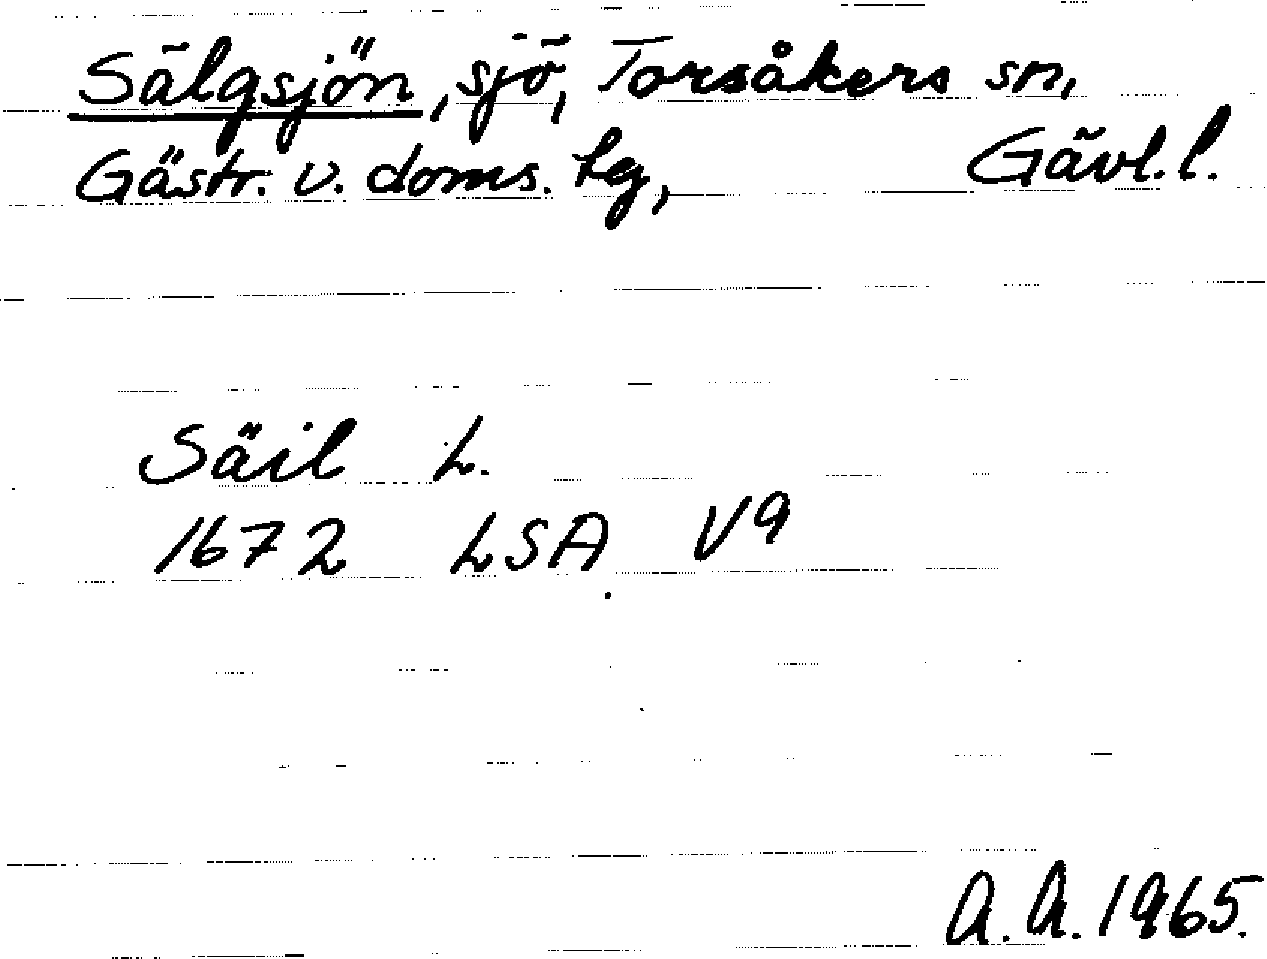 Sälgsjön, sjö, Torsåkers sn,
Gästr. v. doms. tg, Gävl. l.
Säil L.
1672 LSA V9
A. A. 1965.